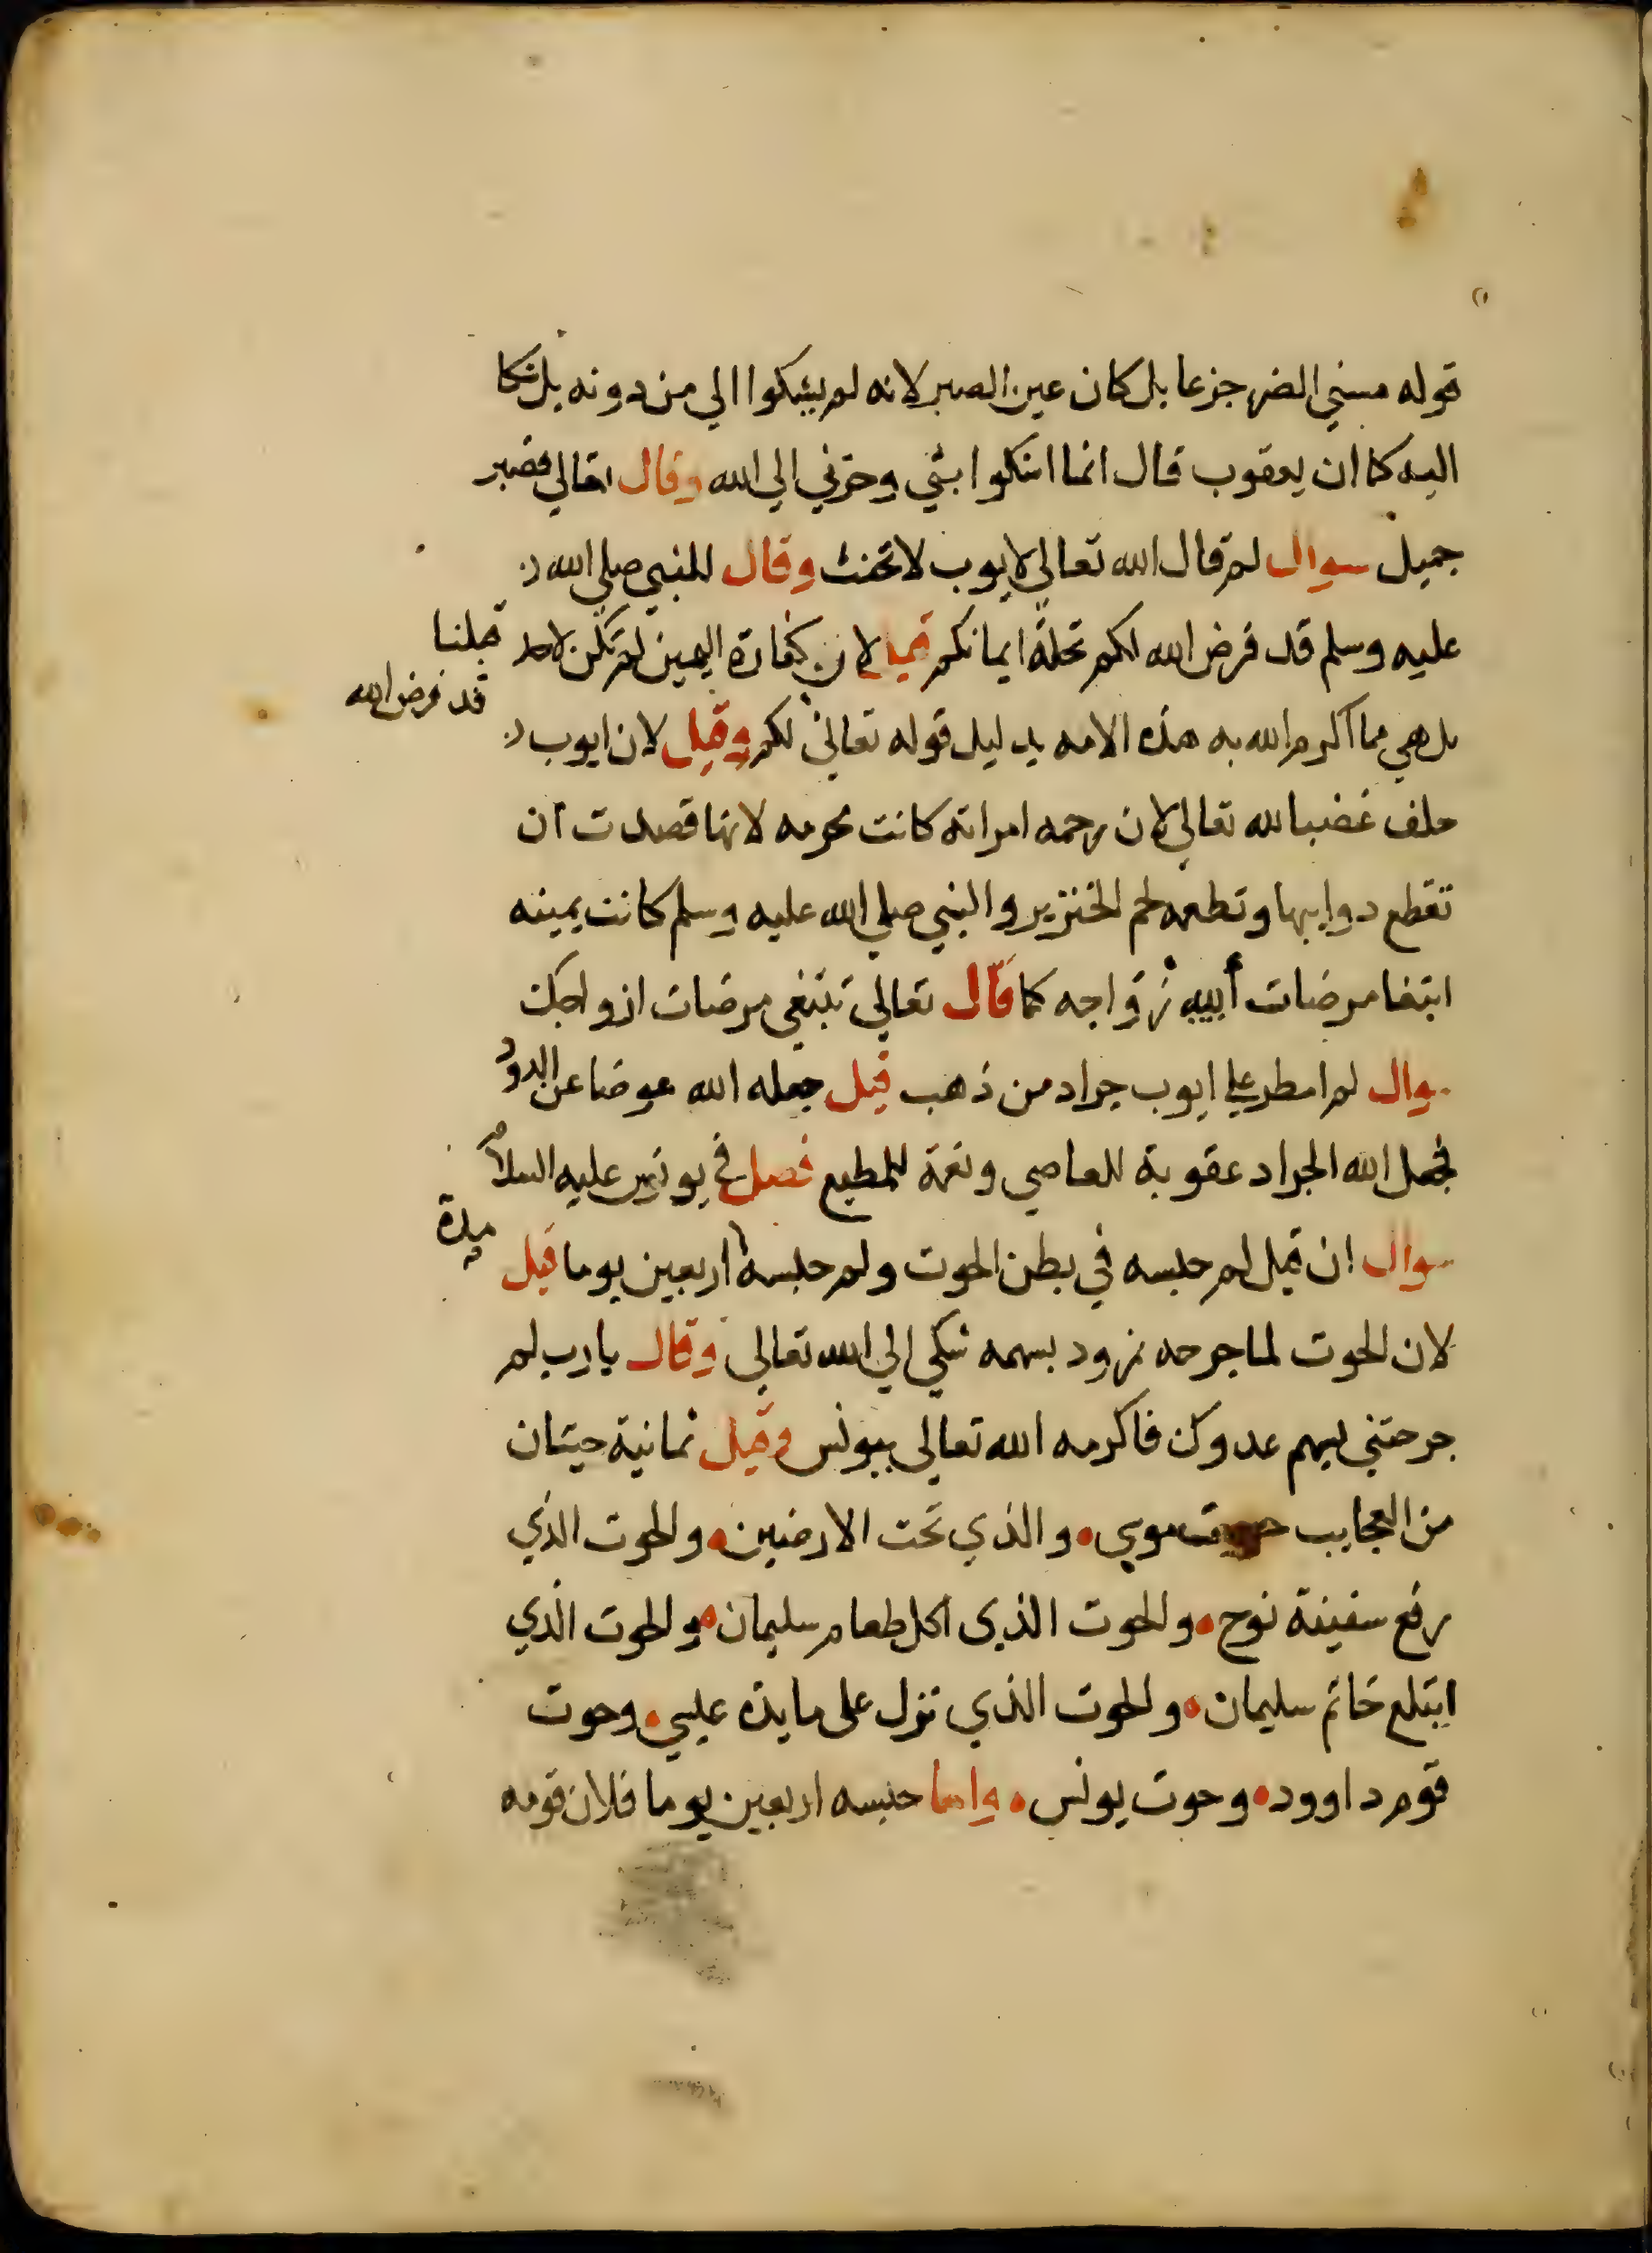 قوله مسني الضر جزعا بل كان عين الصبر لانه لم يشكوا الي من دونه بل شكا
اليه كما ان يعقوب قال انما اشكوا بثي وحزني الي الله وقال تعالي فصبر
جميل سوال لم قال الله تعالي لايوب لا تحنث وقال للنبي صلي الله
عليه وسلم قد فرض الله لكم تحلة ايمانكم قيل لان كفارة اليمين لم تكن لاحد قبلنا
قد فرض الله
بل هي مما اكرم الله به هذه الامه بدليل قوله تعالي لكم وقيل لان ايوب
حلف غضبا لله تعالي لان رحمه امراته كانت محرمه لانها قصدت ان
تقطع دوايبها وتطعمه لحم الخنزير والنبي صلي الله عليه وسلم كانت يمينه
ابتغا مرضات زواجه كما قال تعالي تبتغي مرضات ازواجك
سوال لم امطر علي ايوب جراد من ذهب قيل جعله الله عوضا عن الدود
فجعل الله الجراد عقوبة للعاصي ونعمة للمطيع فصل في يونس عليه السلام
سوال ان قيل لم حبسه في بطن الحوت ولم حبسه اربعين يوما قيل
مدة
لان الحوت لما جرحه نمرود بسهمه شكي الي الله تعالي وقال يا رب لم
جرحتني بسهم عدوك فاكرمه الله تعالي بيونس وقيل ثمانية حيتان
من العجايب حوت موسي والذي تحت الارضين والحوت الذي
رفع سفينة نوح والحوت الذي اكل طعام سليمان والحوت الذي
ابتلع خاتم سليمان والحوت الذي نزل على مايدة عيسي وحوت
قوم داوود وحوت يونس واما حبسه اربعين يوما فلان قومه